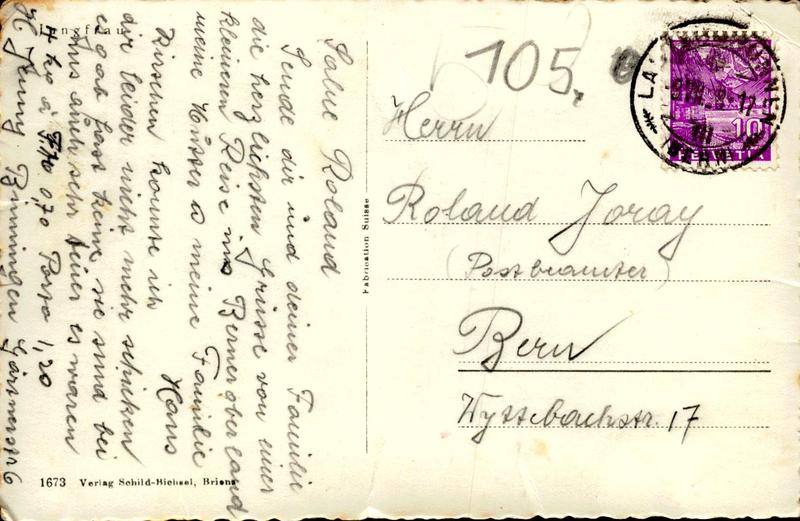 Jungfrau
Salue Roland
Sende dir und deiner Familie
die herzlichsten Grüsse von einer
kleineren Reise ins Berneroberland
meine Mutter & meine Familie
Hans
Kirschen konnte ich
dir leider nicht mehr schicken
es gab fast keine, sie sind bei
uns auch sehr teuer es waren
4 kg à 0,70 Porto 1,20
H Jenny Binningen Gartnerstr 6
1673 Verlag Schild-Bichsel, Brienz
Fabrication Suisse
105.
10
HELVETIA
(BERN)
Herrn
Roland Joray
(Postbeamter)
Bern
Wyttebachstr. 17